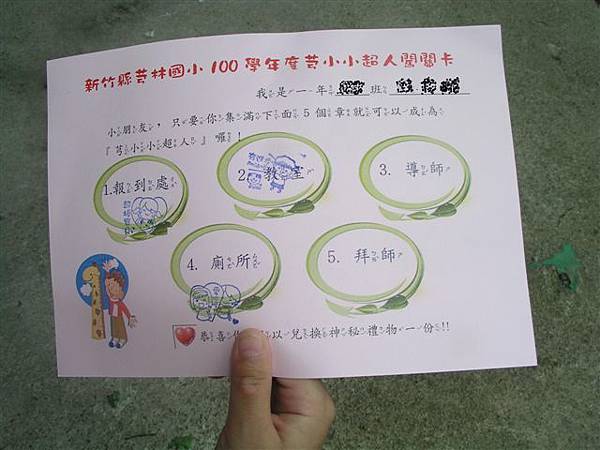 新竹縣芎林國小100學年度芎小小超人闖關卡
我是一年 班
小朋友，只要你集滿下面5個章就可以成為
『芎小小超人』喔！
1.報到處
2. 教室
3. 導師
4. 廁所
5. 拜師
恭喜 以兌換神秘禮物一份!!